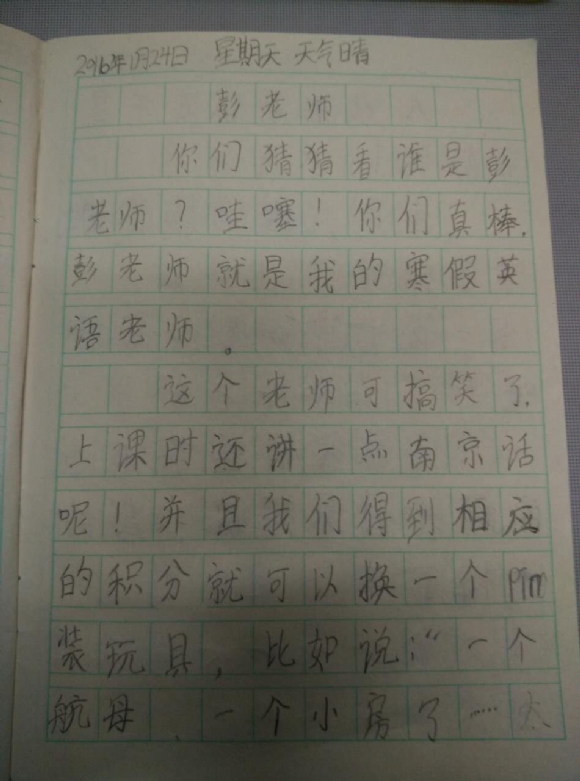 2016年1月24日 星期天 天气晴
彭老师
你们猜猜看谁是彭
老师？哇噻！你们真棒.
彭老师就是我的寒假英
语老师。
这个老师可搞笑了.
上课时还讲一点南京话
呢！并且我们得到相应
的积分就可以换一个pin
装玩具，比如说：“一个
航母、一个小房了……太